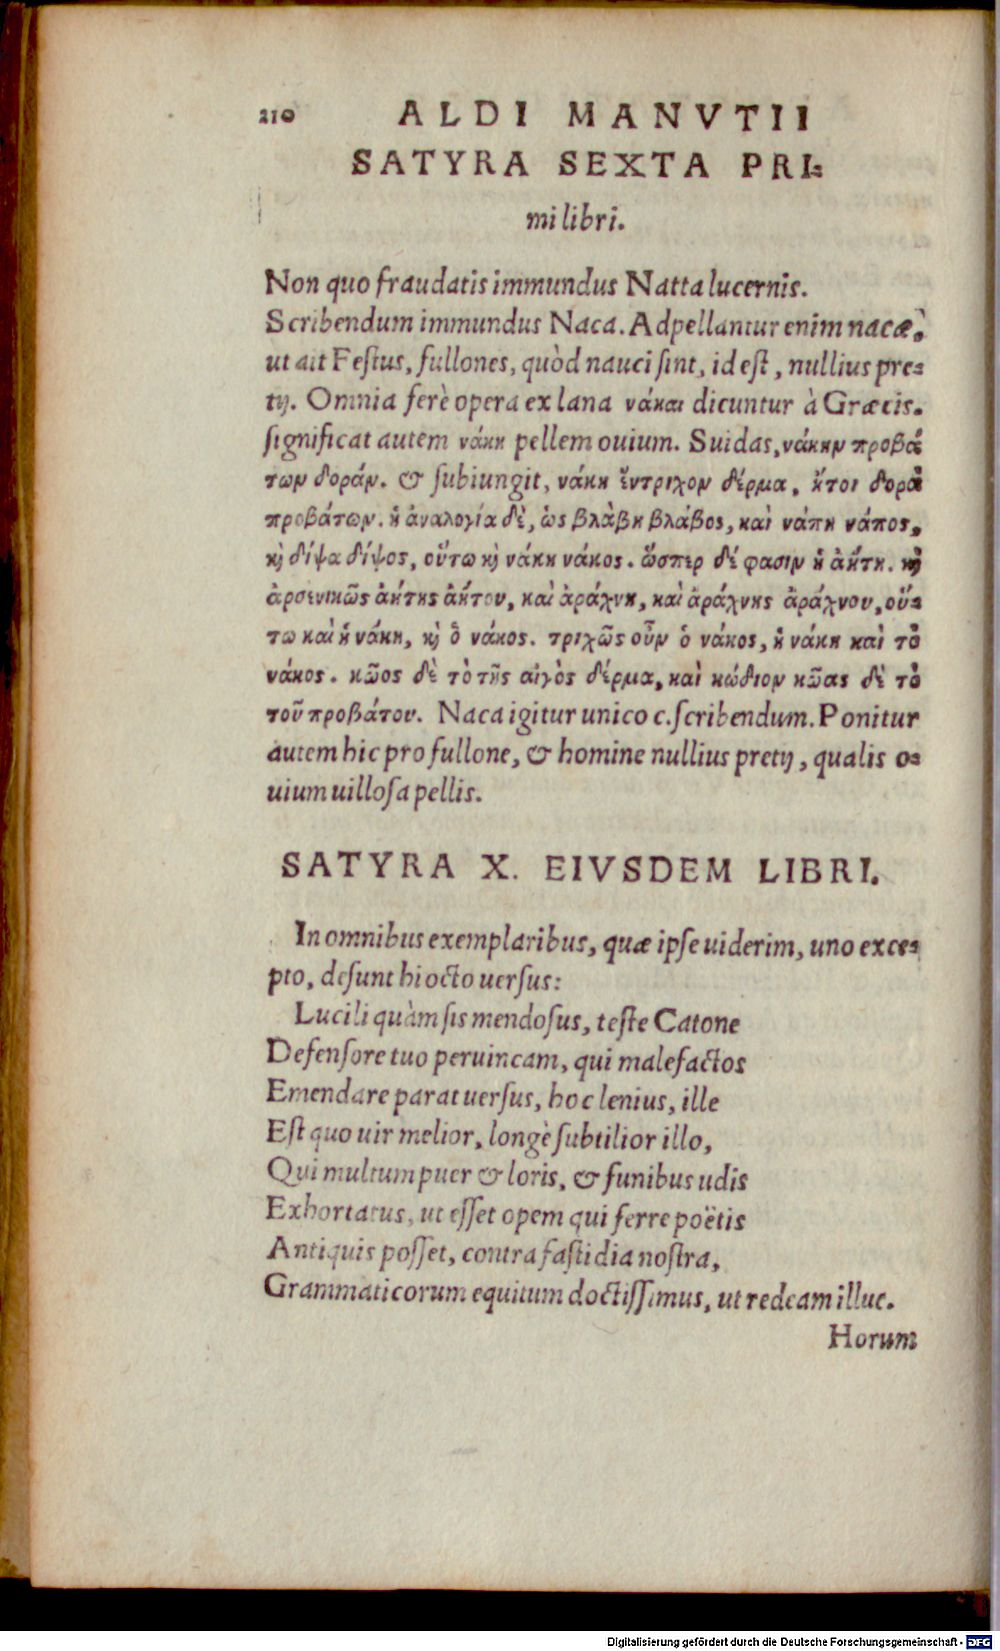 210 ALDI MANVTII
SATYRA SEXTA PRI-
mi libri.
Non quo fraudatis immundus Natta lucernis.
Scribendum immundus Naca. Adpellantur enim nacæ,
ut ait Feſtus, fullones, quòd nauci ſint, id eſt, nullius pre-
tij. Omnia ferè opera ex lana νάκαι dicuntur à Græcis.
ſignificat autem νάκη pellem ouium. Suidas, νάκην προβά
των δοράν. & ſubiungit, νάκη ἔντριχον δέρμα, ἤτοι δορὰ
προβάτων. ἡ ἀναλογία δὲ, ὡς βλάβη βλάβος, καὶ νάπη νάπος,
καὶ δίψα δίψος, οὕτω καὶ νάκη νάκος. ὥσπερ δέ φασιν ἡ ἀήτη. καὶ
ἀρσενικῶς ἀήτης ἀήτου, καὶ ἀράχνη, καὶ ἀράχνης ἀράχνου, οὕ-
τω καὶ ἡ νάκη, καὶ ὁ νάκος. τριχῶς οὖν ὁ νάκος, ἡ νάκη καὶ τὸ
νάκος. κῶος δὲ τὸ τῆς αἰγὸς δέρμα, καὶ κώδιον κῶας δὲ τὸ
τοῦ προβάτου. Naca igitur unico c. ſcribendum. Ponitur
autem hic pro fullone, & homine nullius pretij, qualis o-
uium uilloſa pellis.
SATYRA X. EIVSDEM LIBRI.
In omnibus exemplaribus, quæ ipſe uiderim, uno exce-
pto, deſunt hi octo uerſus:
Lucili quàm ſis mendoſus, teſte Catone
Defenſore tuo peruincam, qui malefactos
Emendare parat uerſus, hoc lenius, ille
Eſt quo uir melior, longè ſubtilior illo,
Qui multum puer & loris, & funibus udis
Exhortatus, ut eſſet opem qui ferre poëtis
Antiquis poſſet, contra faſtidia noſtra,
Grammaticorum equitum doctiſſimus, ut redeam illuc.
Horum
Digitalisierung gefördert durch die Deutsche Forschungsgemeinschaft - DFG